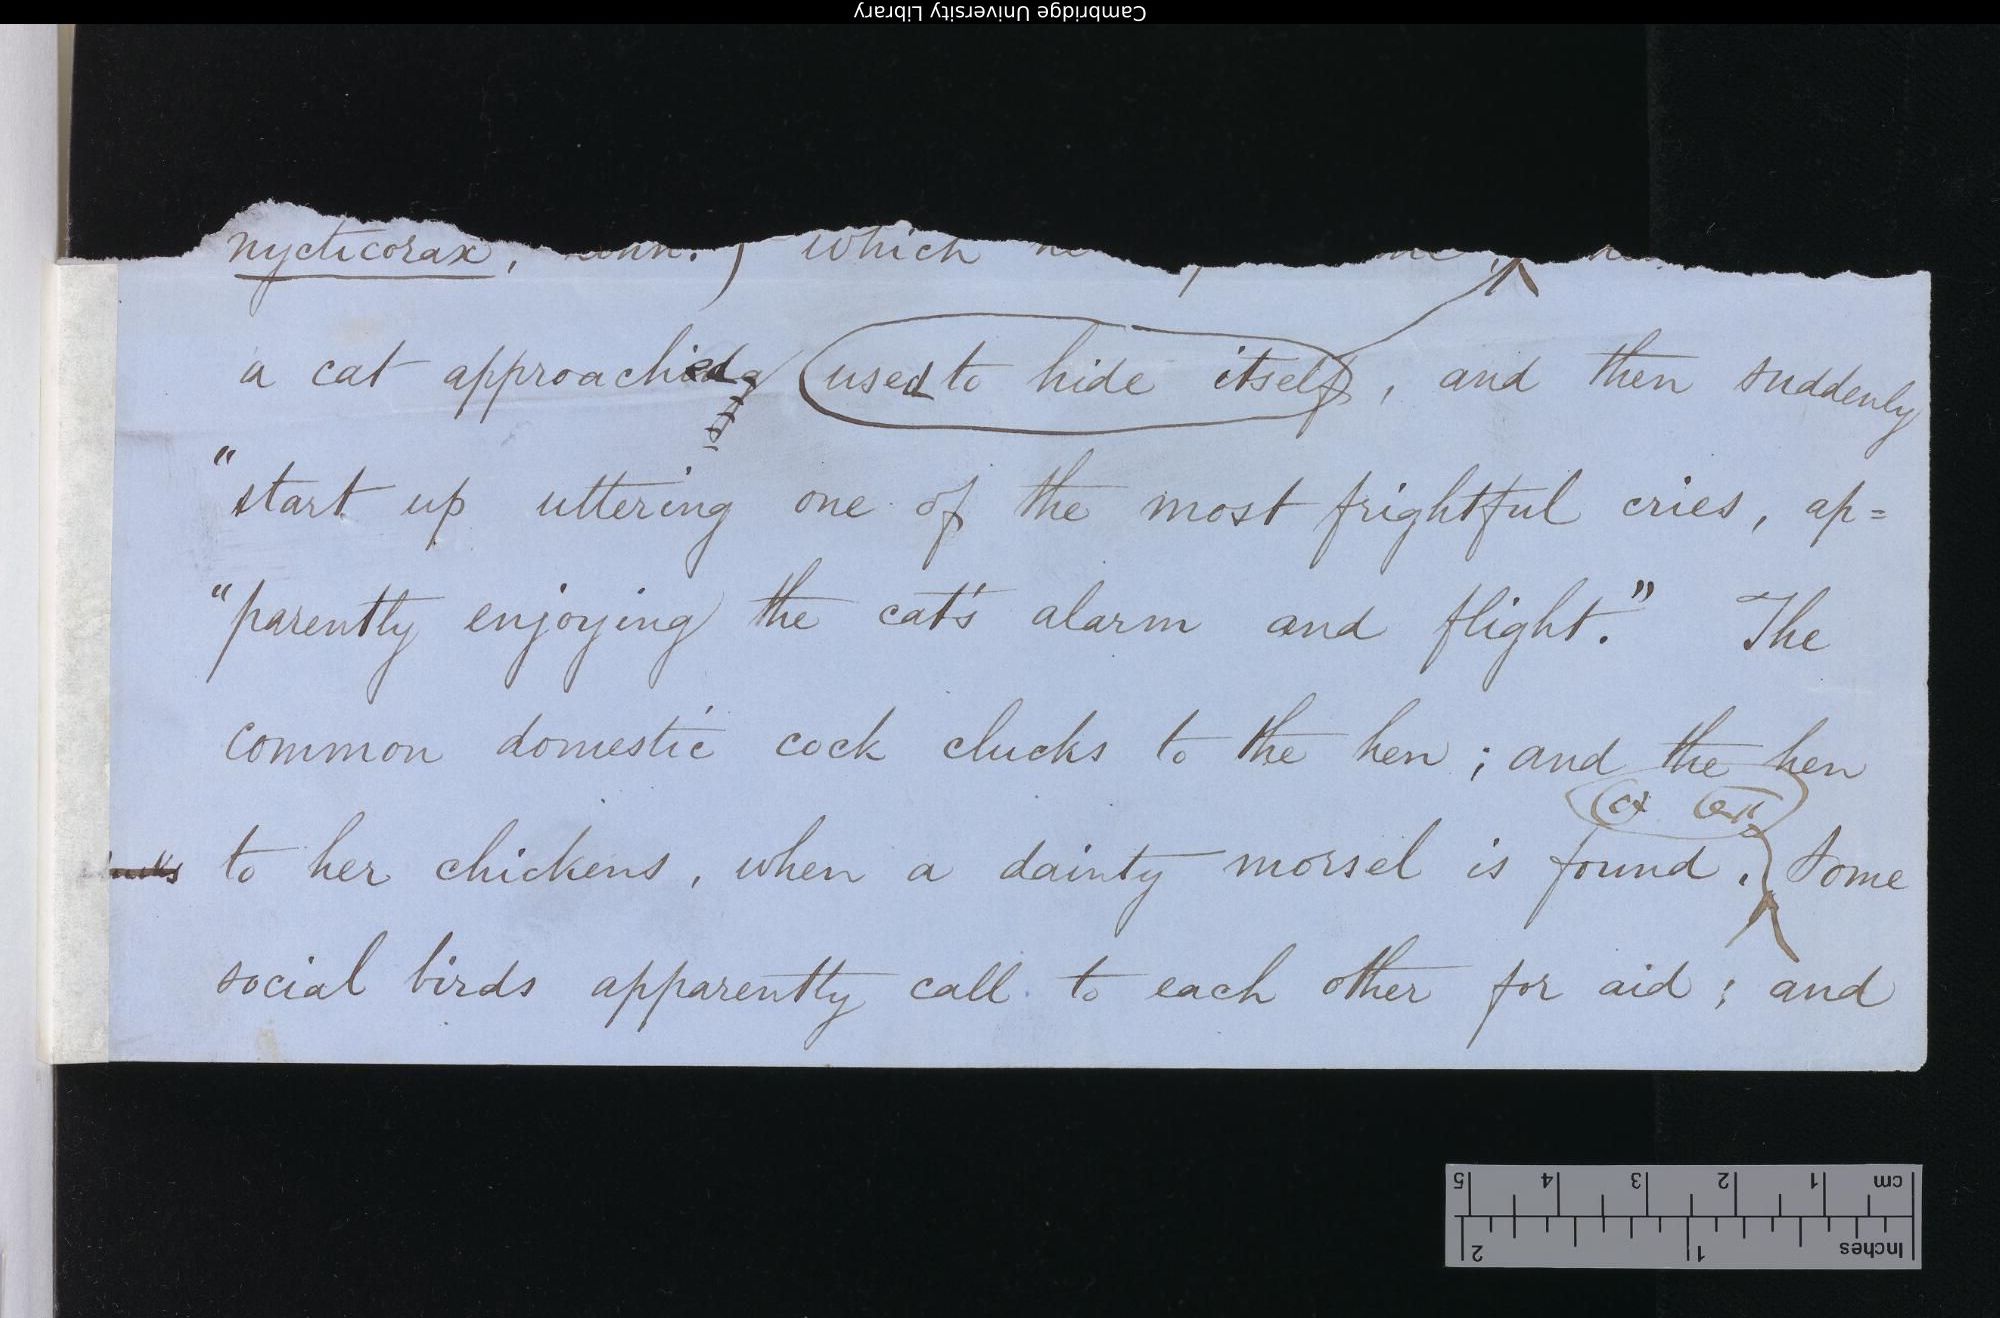 Cambridge University Library
nycticorax, Linn.) which
a cat approached used to hide itself, and then suddenly
"start up uttering one of the most frightful cries, ap=
"parently enjoying the cat's alarm and flight." The
common domestic cock clucks to the hen; and the hen
to her chickens, when a dainty morsel is found. Some
social birds apparently call to each other for aid; and
5 4 3 2 1 cm
2 1 Inches